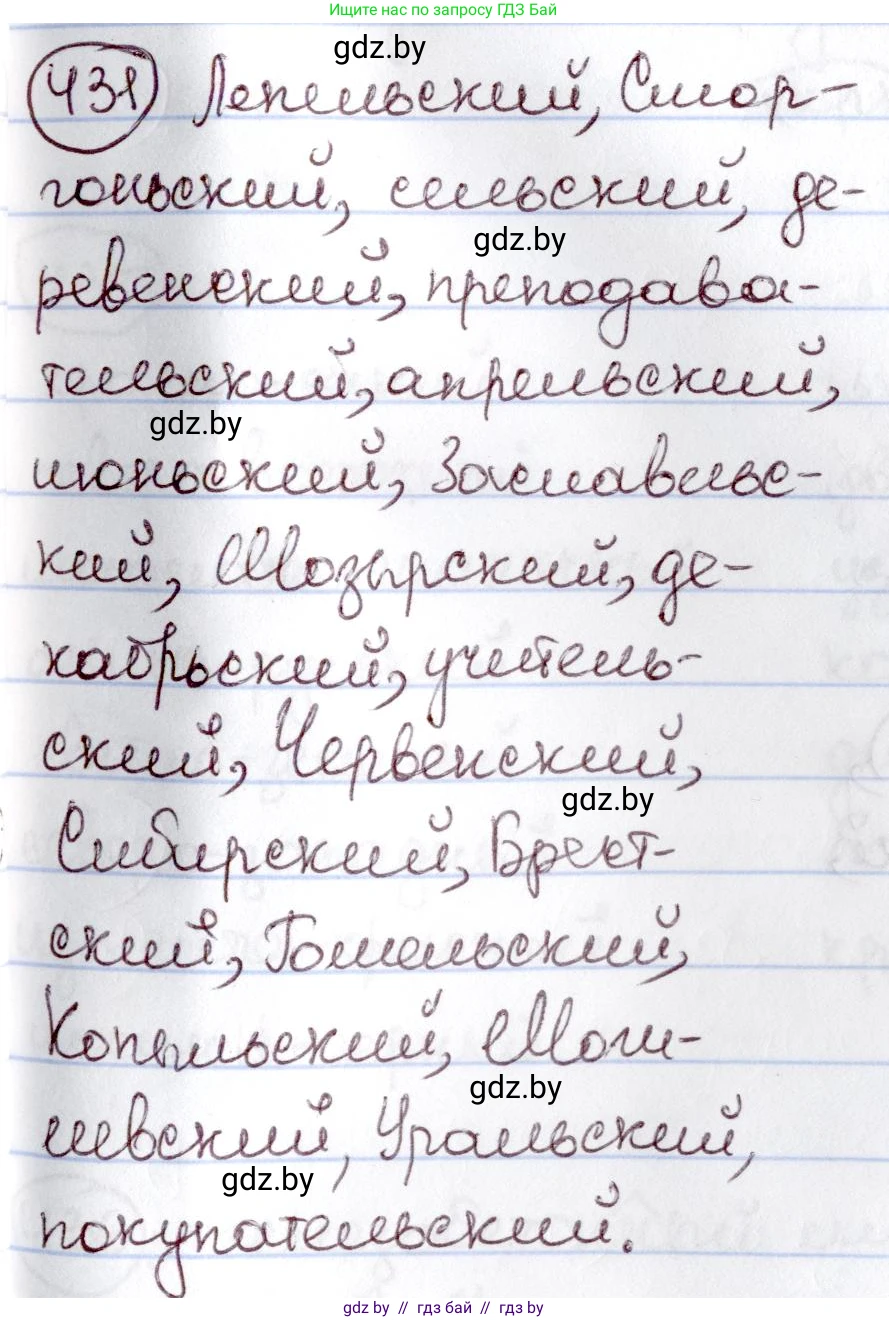 Ищите нас по запросу ГДЗ Бай
gdz.by
431 Лепельский, Смор-
гоньский, сельский, де-
gdz.by
ревенский, препода­ва-
тельский, апрельский,
gdz.by
июньский, Заславльс-
кий, Мозырский, де-
кабрьский, учитель-
ский, Червенский,
gdz.by
Сибирский, Брест-
ский, Гомельский,
Копыльский, Моги-
gdz.by
левский, Уральский,
gdz.by
покупательский.
gdz by // гдз бай // гдз by